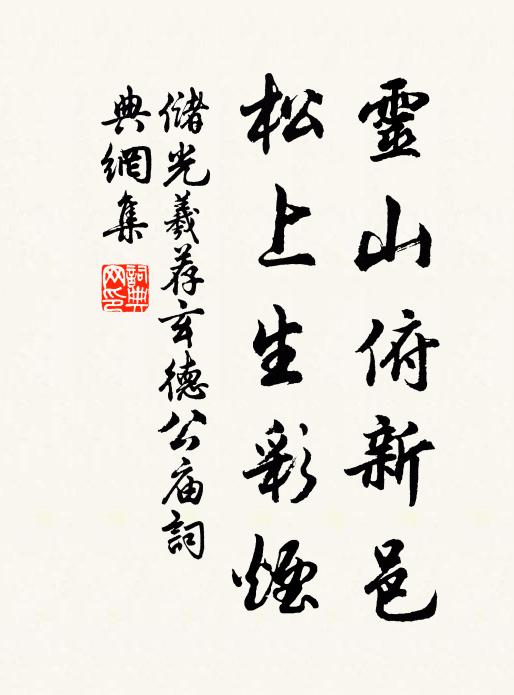 靈山俯新邑
松上生彩煙
儲光羲荐玄德公庙詞
典網集
詞典网印